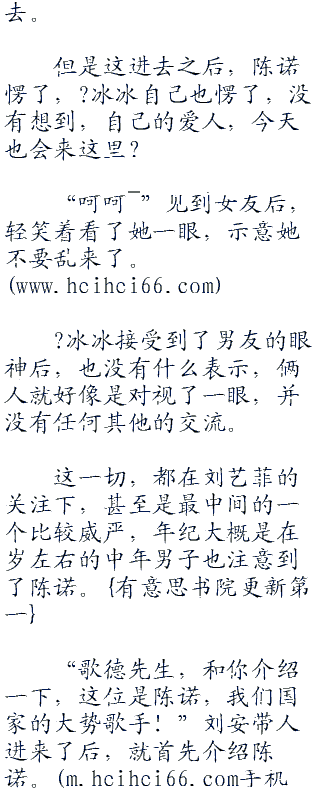 去。
但是这进去之后，陈诺
愣了，?冰冰自己也愣了，没
有想到，自己的爱人，今天
也会来这里？
“呵呵~”见到女友后，
轻笑着看了她一眼，示意她
不要乱来了。
(www.hcihci66.com)
?冰冰接受到了男友的眼
神后，也没有什么表示，俩
人就好像是对视了一眼，并
没有任何其他的交流。
这一切，都在刘艺菲的
关注下，甚至是最中间的一
个比较威严，年纪大概是在
岁左右的中年男子也注意到
了陈诺。{有意思书院更新第
一}
“歌德先生，和你介绍
一下，这位是陈诺，我们国
家的大势歌手！”刘安带人
进来了后，就首先介绍陈
诺。(m.hcihci66.com手机